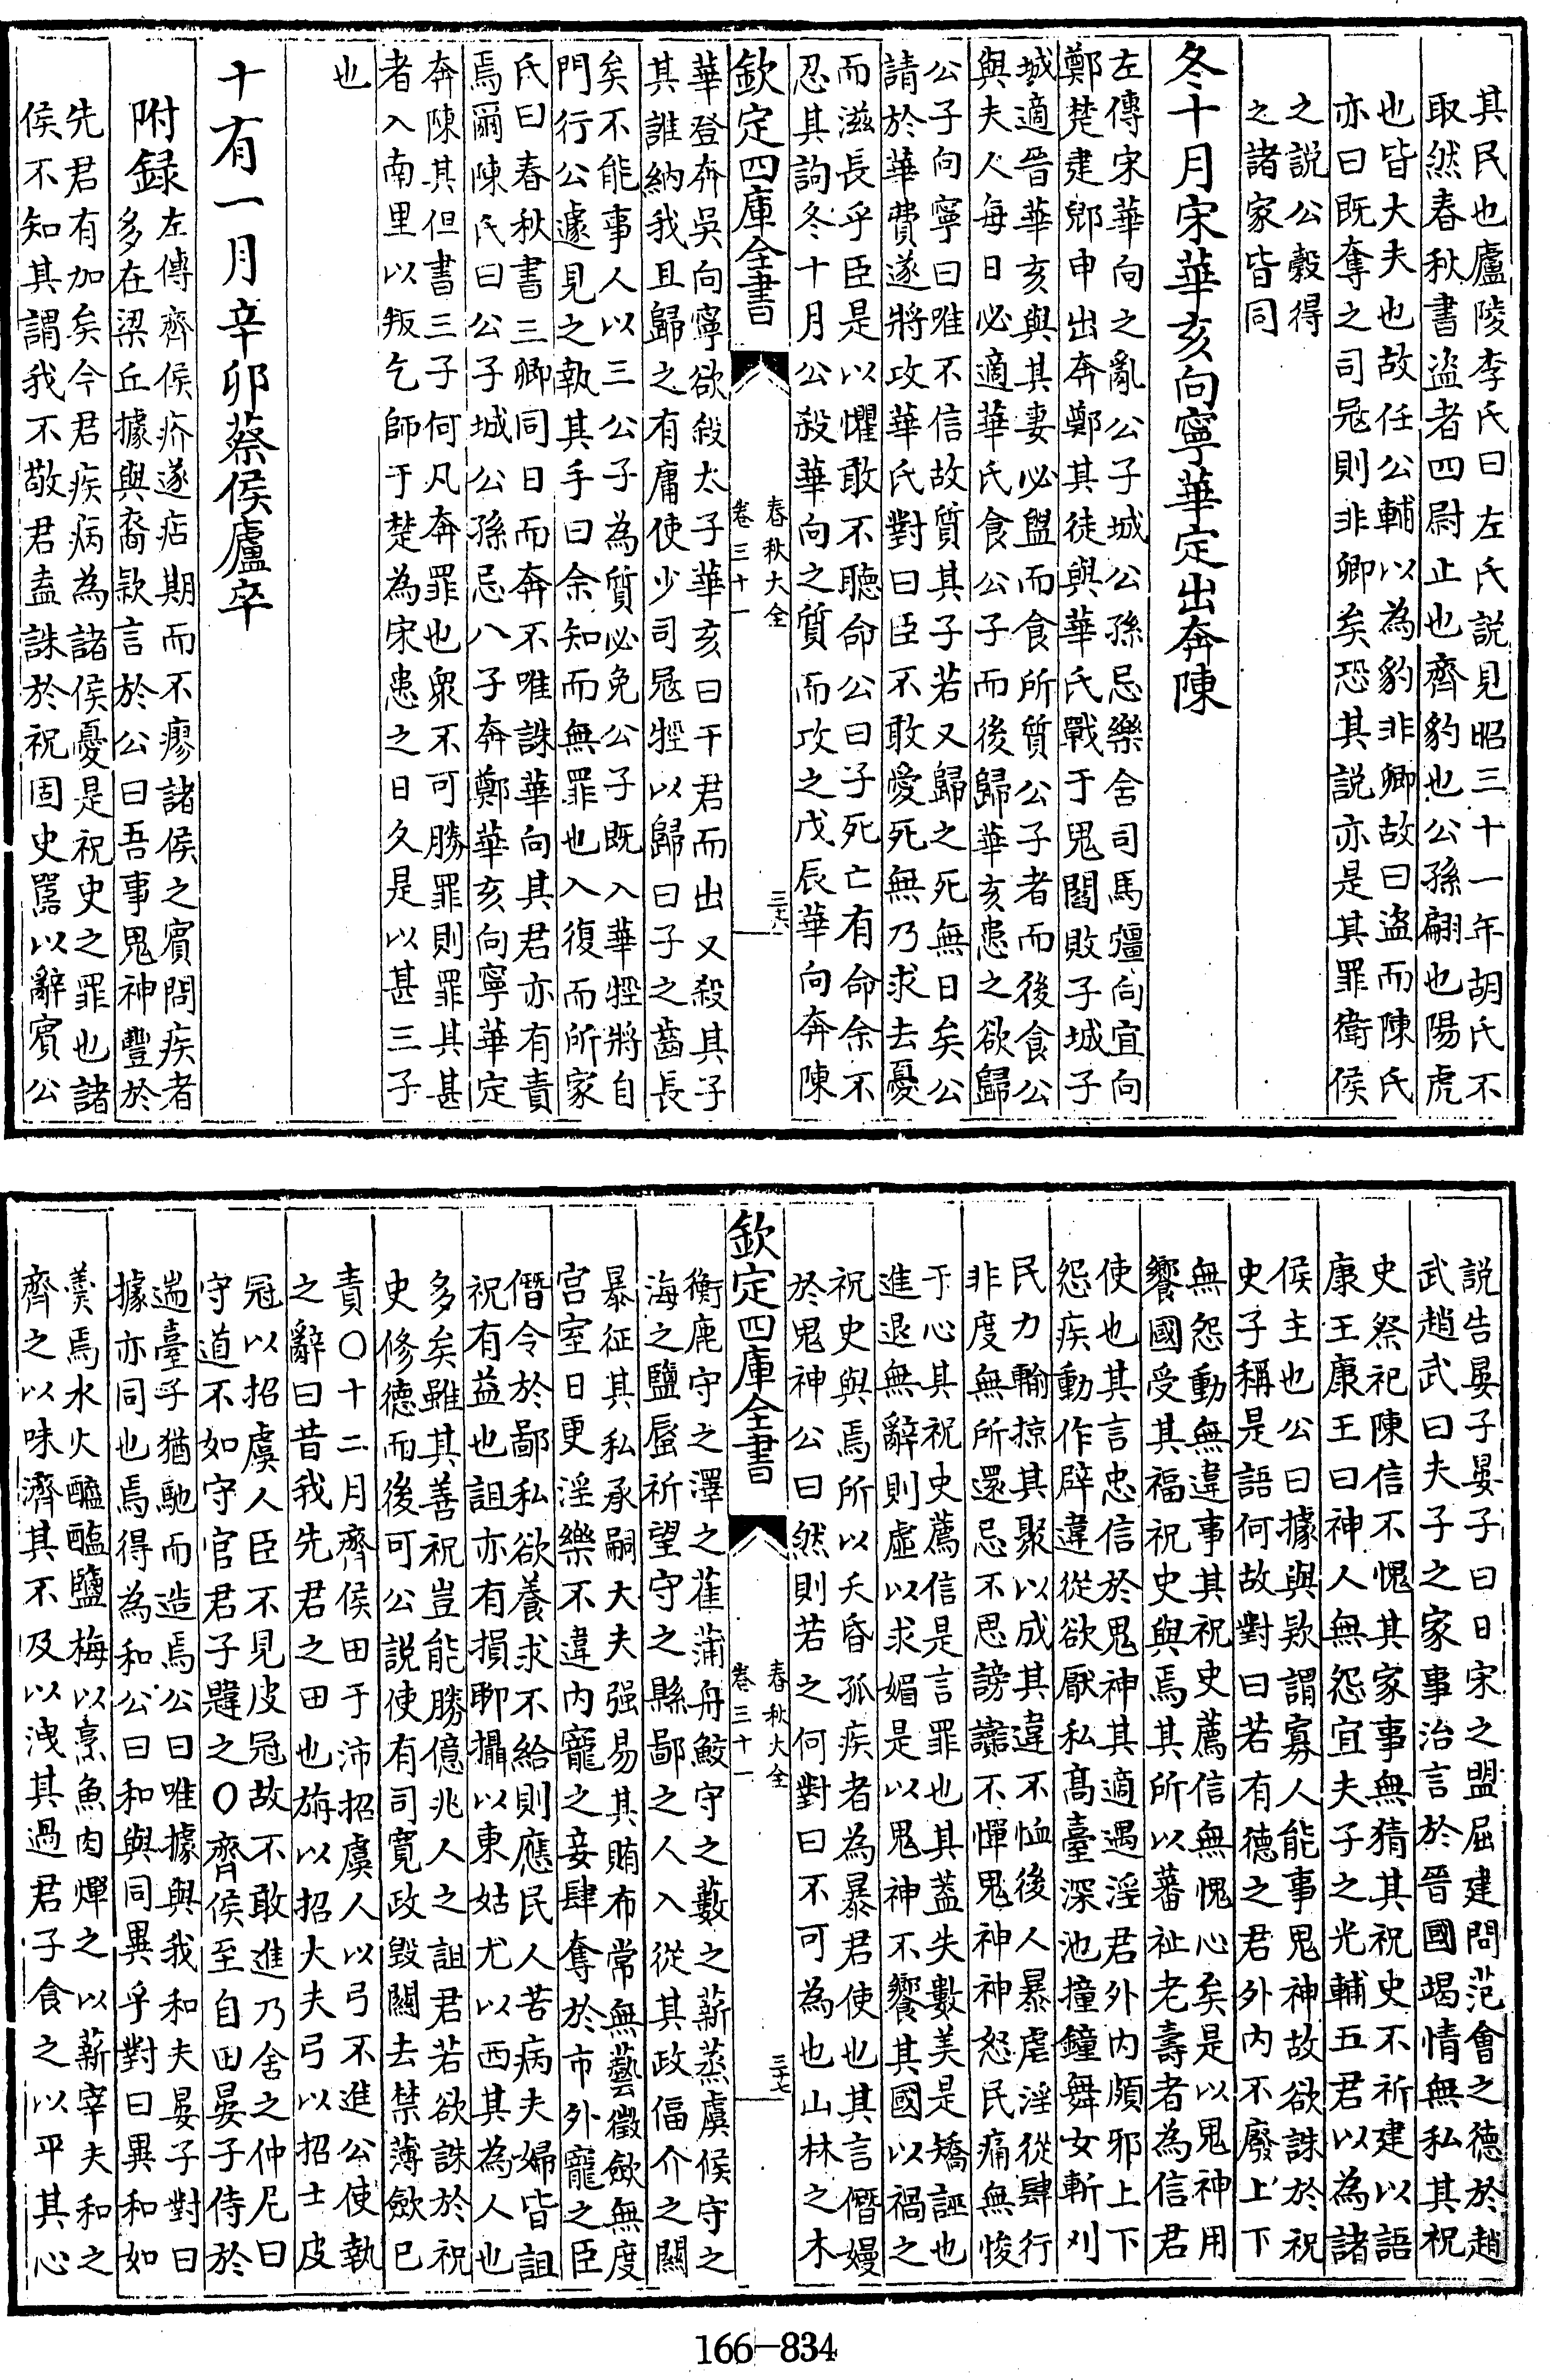 其民也盧陵李氏曰左氏説見昭三十一年胡氏不
取然春秋書盜者四尉止也齊豹也公孫翩也陽虎
也皆大夫也故任公輔以為豹非卿故曰盜而陳氏
亦曰既奪之司冦則非卿矣恐其説亦是其罪衛侯
之説公穀得
之諸家皆同
冬十月宋華亥向寧華定出奔陳
左傳宋華向之亂公子城公孫忌樂舍司馬彊向宜向
鄭楚建郳申出奔鄭其徒與華氏戰于鬼閻敗子城子
城適晉華亥與其妻必盥而食所質公子者而後食公
與夫人每日必適華氏食公子而後歸華亥患之欲歸
公子向寧曰唯不信故質其子若又歸之死無日矣公
請於華費遂將攻華氏對曰臣不敢愛死無乃求去憂
而滋長乎臣是以懼敢不聽命公曰子死亡有命余不
忍其訽冬十月公殺華向之質而攻之戊辰華向奔陳
欽定四庫全書
春秋大全
卷三十一
三十六
華登奔吳向寧欲殺太子華亥曰干君而出又殺其子
其誰納我且歸之有庸使少司冦牼以歸曰子之齒長
矣不能事人以三公子為質必免公子既入華牼將自
門行公遽見之執其手曰余知而無罪也入復而所家
氏曰春秋書三卿同日而奔不唯誅華向其君亦有責
焉爾陳氏曰公子城公孫忌八子奔鄭華亥向寧華定
奔陳其但書三子何凡奔罪也衆不可勝罪則罪其甚
者入南里以叛乞師于楚為宋患之日久是以甚三子
也
十有一月辛卯蔡侯廬卒
附録
左傳齊侯疥遂痁期而不瘳諸侯之賓問疾者
多在梁丘據與裔款言於公曰吾事鬼神豐於
先君有加矣今君疾病為諸侯憂是祝史之罪也諸
侯不知其謂我不敬君盍誅於祝固史嚚以辭賓公
説告晏子晏子曰日宋之盟屈建問范會之德於趙
武趙武曰夫子之家事治言於晉國竭情無私其祝
史祭祀陳信不愧其家事無猜其祝史不祈建以語
康王康王曰神人無怨宜夫子之光輔五君以為諸
侯主也公曰據與欵謂寡人能事鬼神故欲誅於祝
史子稱是語何故對曰若有德之君外内不廢上下
無怨動無違事其祝史薦信無愧心矣是以鬼神用
饗國受其福祝史與焉其所以蕃祉老壽者為信君
使也其言忠信於鬼神其適遇淫君外内頗邪上下
怨疾動作辟違從欲厭私髙臺深池撞鐘舞女斬刈
民力輸掠其聚以成其違不恤後人暴虐淫從肆行
非度無所還忌不思謗讟不憚鬼神神怒民痛無悛
于心其祝史薦信是言罪也其蓋失數美是矯誣也
進退無辭則虛以求媚是以鬼神不饗其國以禍之
祝史與焉所以夭昏孤疾者為暴君使也其言僭嫚
於鬼神公曰然則若之何對曰不可為也山林之木
欽定四庫全書
春秋大全
卷三十一
三十七
衡鹿守之澤之萑蒲舟鮫守之藪之薪蒸虞候守之
海之鹽蜃祈望守之縣鄙之人入從其政偪介之關
暴征其私承嗣大夫强易其賄布常無藝徵斂無度
宫室日更淫樂不違内寵之妾肆奪於市外寵之臣
僭令於鄙私欲養求不給則應民人苦病夫婦皆詛
祝有益也詛亦有損聊攝以東姑尤以西其為人也
多矣雖其善祝豈能勝億兆人之詛君若欲誅於祝
史修德而後可公説使有司寛政毁關去禁薄斂已
責〇十二月齊侯田于沛招虞人以弓不進公使執
之辭曰昔我先君之田也旃以招大夫弓以招士皮
冠以招虞人臣不見皮冠故不敢進乃舍之仲尼曰
守道不如守官君子韙之〇齊侯至自田晏子侍於
遄臺子猶馳而造焉公曰唯據與我和夫晏子對曰
據亦同也焉得為和公曰和與同異乎對曰異和如
羹焉水火醯醢鹽梅以烹魚肉燀之以薪宰夫和之
齊之以味濟其不及以洩其過君子食之以平其心
166-834